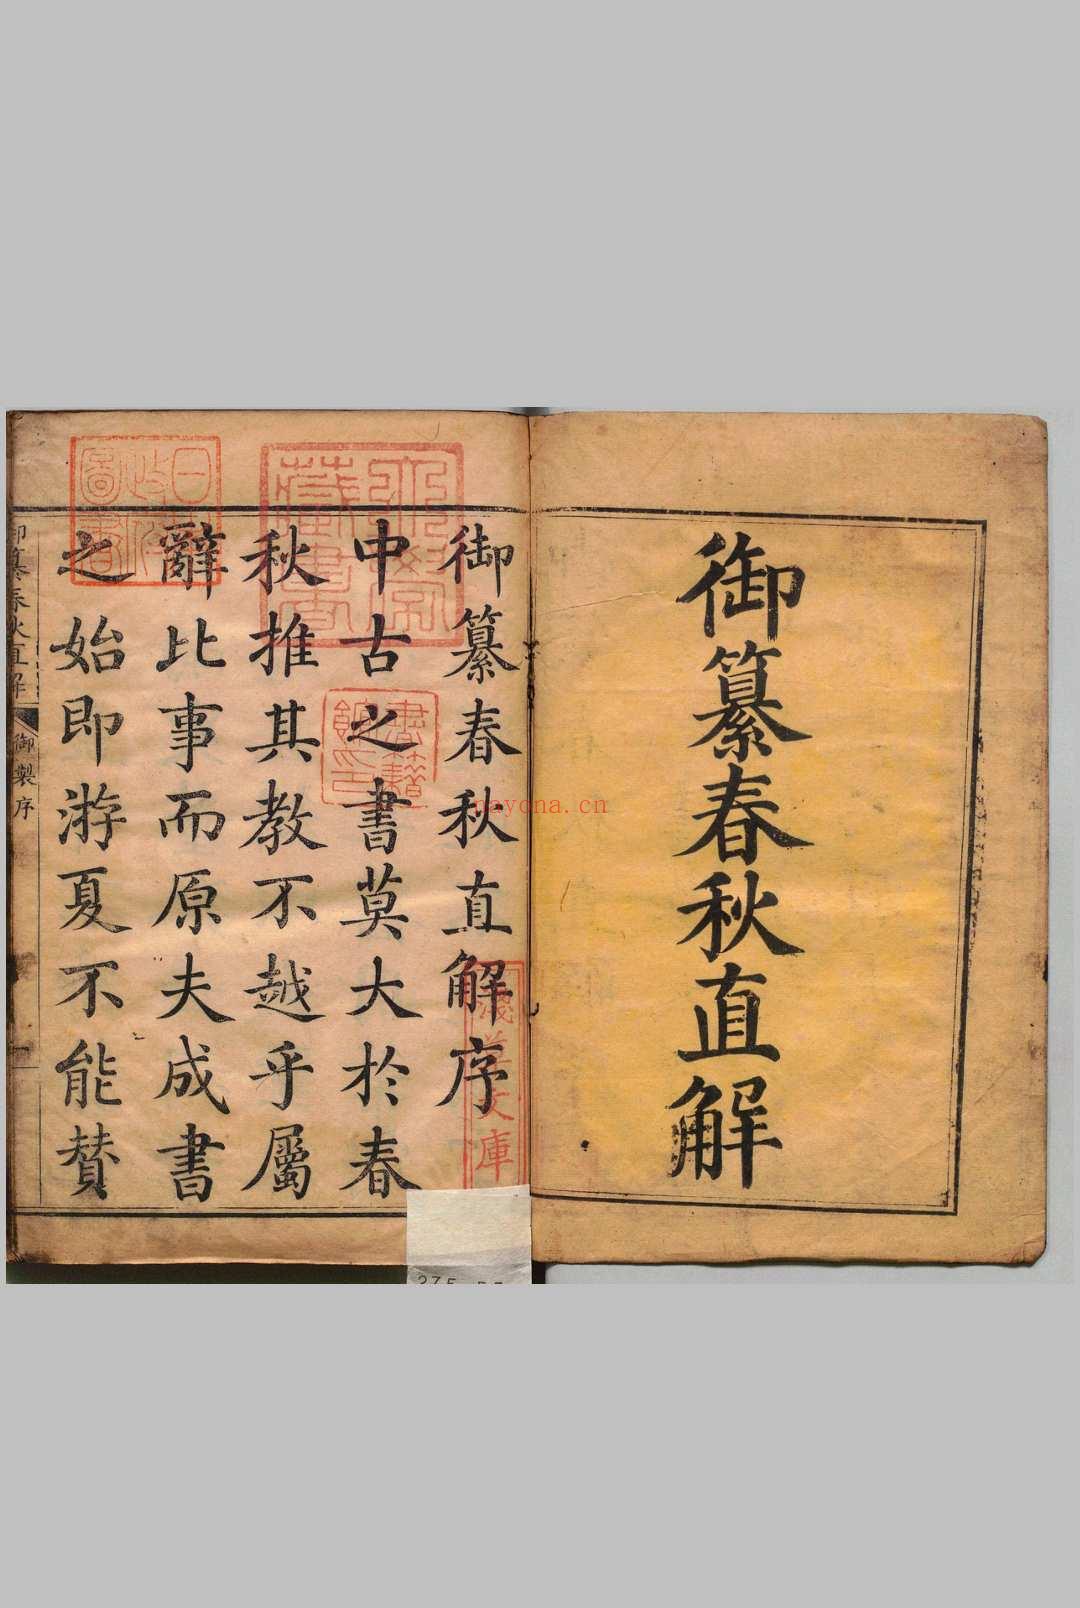 御纂春秋直解
御纂春秋直解序
中古之書莫大於春
秋推其教不越乎屬
辭比事而原夫成書
之始即游夏不能贊
御纂春秋直解
御製序
書籍
館印
藏書
圖書
文庫
nayona.cn